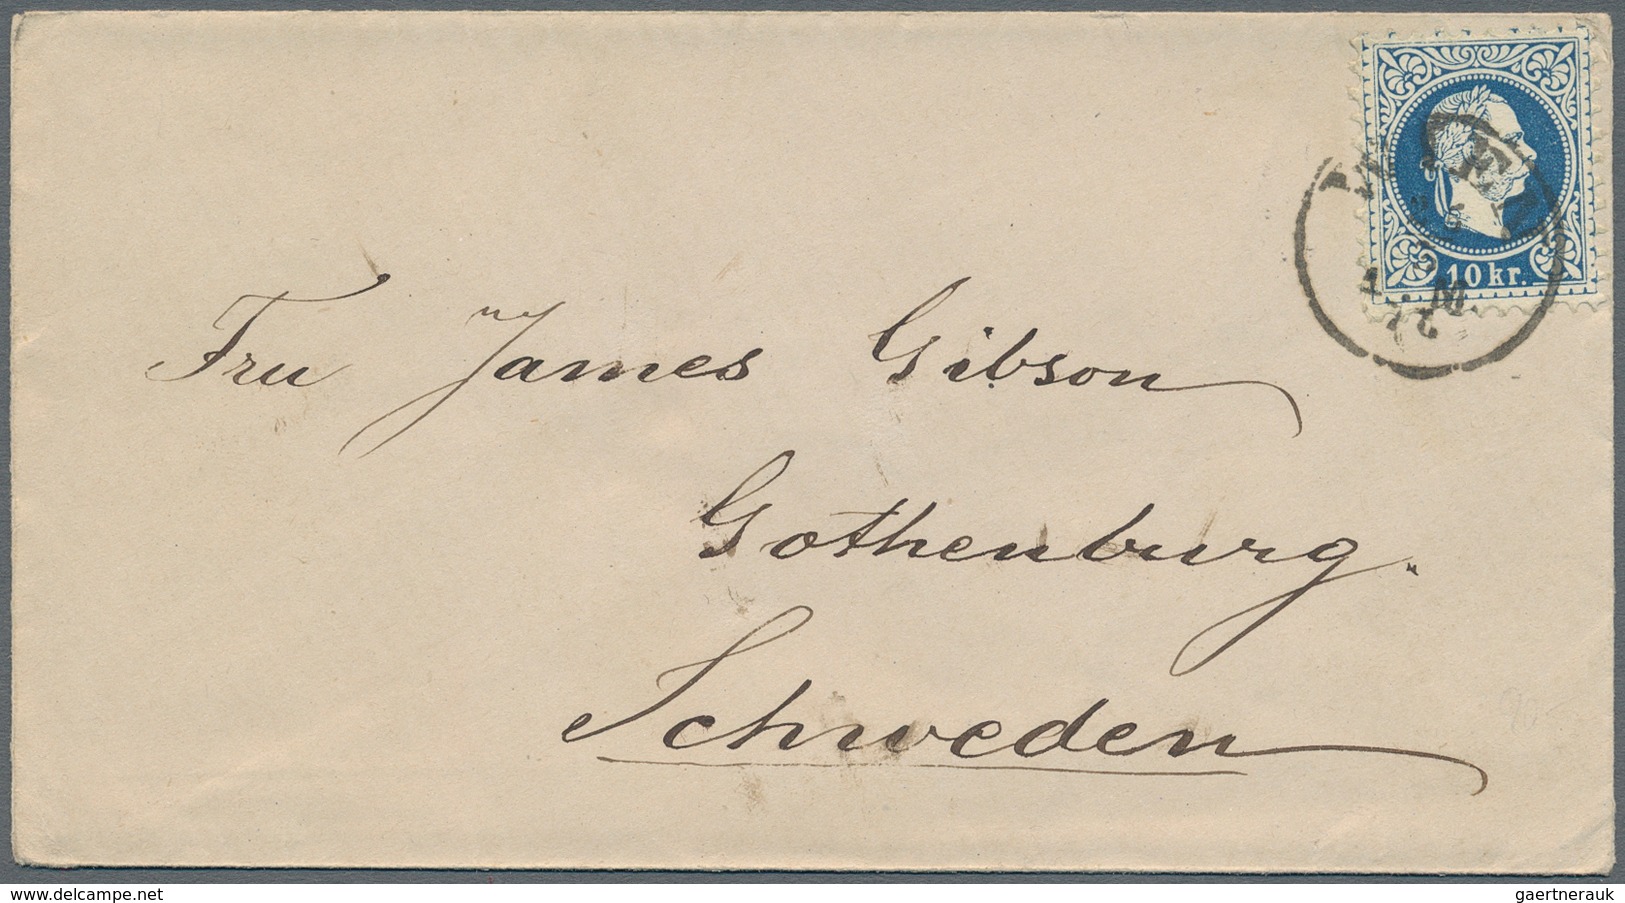 10 kr.
Fru James Gibson
Gothenburg.
Schweden
delcampe.net
gaertnerauk